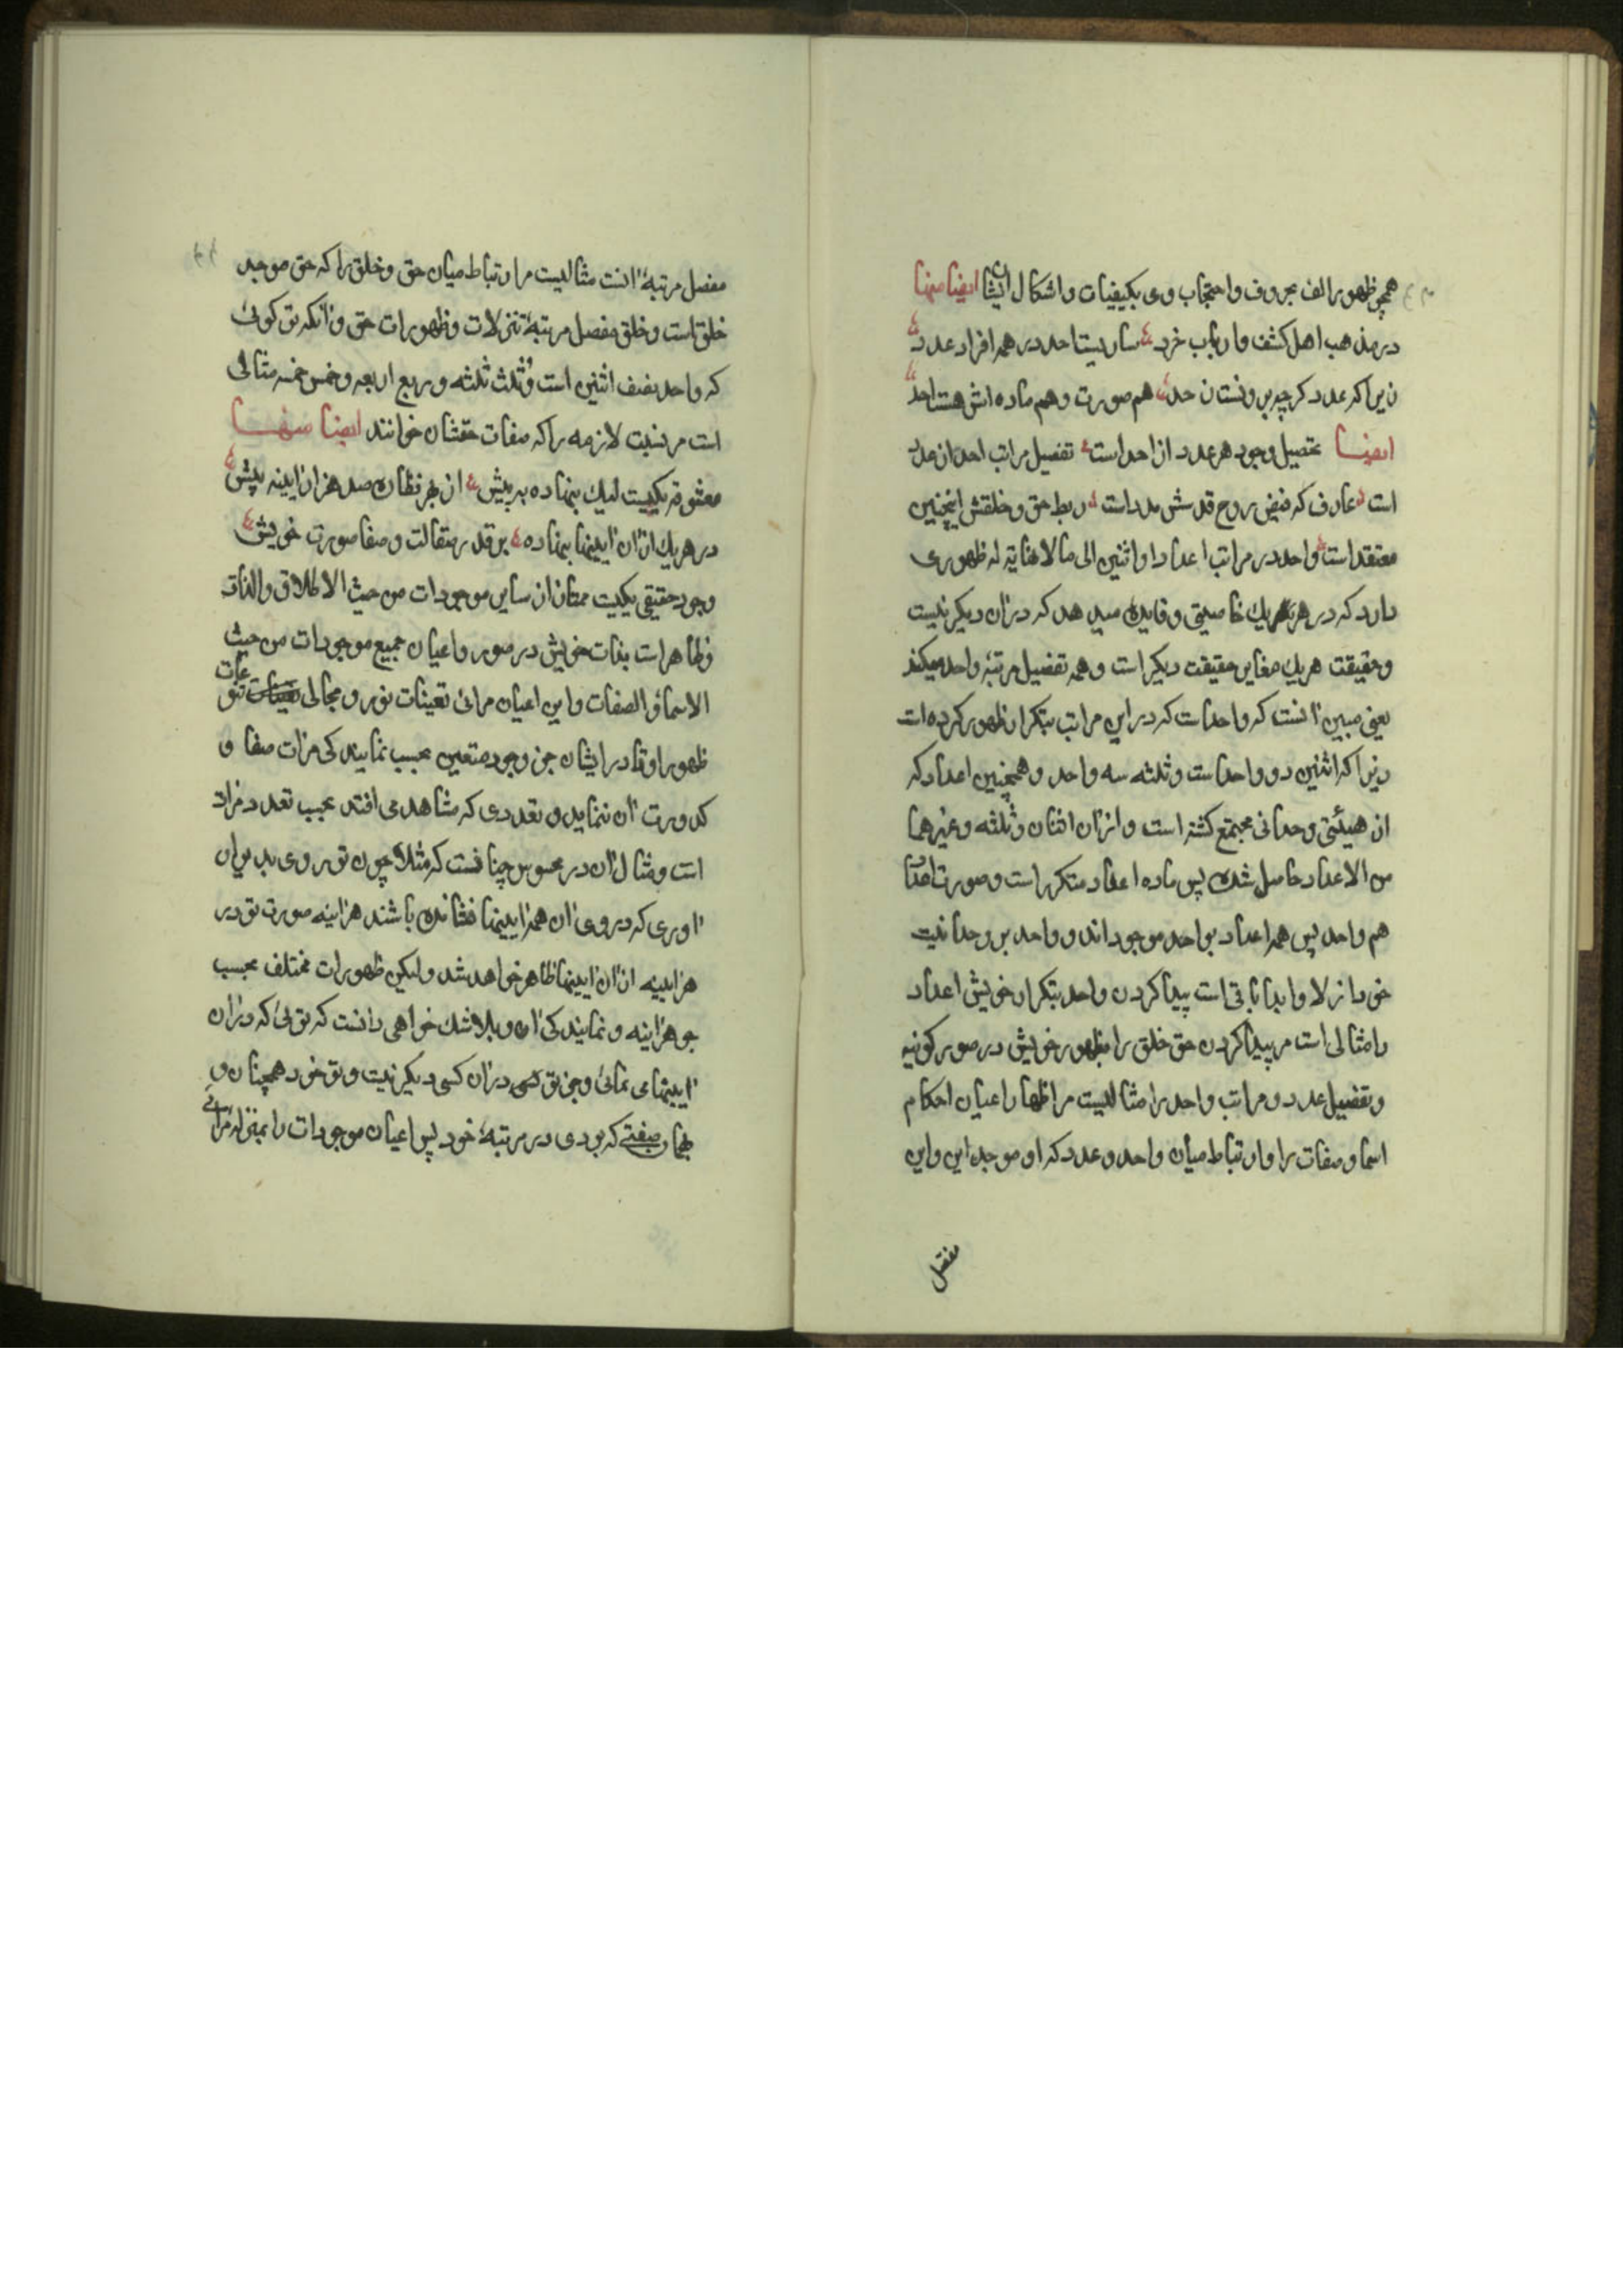 همچو ظهور الف بحروف واحتجاب وی بکیفیات واشکال ایشان ایضا منها
در مذهب اهل کشف وارباب خرد ساریست احد در همه افراد عدد
زیرا که عدد کرچه برونست زحد هم صورت وهم ماده اش هست احد
ایضـا تحصیل وجود هر عدد از احد است تفصیل مراتب احد از عدد
است عارف که فیض روح قدسش مدد است ربط حق وخلقش اینچنین
معتقد است وواحد در مراتب اعداد از اثنین الی ما لا نهایة له ظهوری
دارد که در هر یک خاصیتی وفایده میدهد که در ان دیکر نیست
وحقیقت هر یک مغایر حقیقت دیکر است وهمه تفصیل مرتبه واحد میکند
یعنی مبین انست که واحد است که در این مراتب بتکرار ظهور کرده است
زیرا که اثنین دو واحد است وثلثه سه واحد وهمچنین اعداد که
از هیئتی وحدانی مجتمع کشته است واز ان اثنان وثلثه وغیرهما
من الاعداد حاصل شده پس ماده اعداد متکرر است وصورت اعداد
هم واحد پس همه اعداد بواحد موجود اند وواحد بر وحدانیت
خود ازلا وابدا باقی است پیدا کردن واحد بتکرار خویش اعداد
را مثالی است مر پیدا کردن حق خلق را بظهور خویش در صور کونیه
وتفصیل عدد ومراتب واحد را مثالیست مر اظهار اعیان احکام
اسما وصفات را وارتباط میان واحد وعدد که او موجد این واین
مفصل
مفصل مرتبهٔ انست مثالیست مر ارتباط میان حق وخلق را که حق موجد
خلق است وخلق مفصل مرتبهٔ تنزلات وظهورات حق وانکه تو کوئی
که واحد نصف اثنین است وثلث ثلثه وربع اربعه وخمس خمسه مثالی
است مر نسبت لازمه را که صفات حقشان خوانند ایضا منهـا
معشوقه یکیست لیک بنهاده به پیش از بهر نظاره صد هزار ایینه پیش
در هر یک از ان ایینها بنهاده بر قدر صقالت وصفا صورت خویش
وجود حقیقی یکیست ممتاز از سایر موجودات من حیث الاطلاق والذات
وظاهر است بذات خویش در صور واعیان جمیع موجودات من حیث
الاسماء والصفات واین اعیان مرائی تعینات نور ومجالی تنوعات
ظهور اوقات در ایشان جز وجود متعین بحسب نمایندکی مرات صفا و
کدورت ان ننماید وتعددی که مشاهد می افتد بحسب تعدد مرات
است ومثال ان در محسوس چنانست که مثلا چون تو روی بدیواری
اوری که در روی ان همه ایینها نشانده باشند هراینه صورت تو در
هر ایینه از ان ایینها ظاهر خواهد شد ولیکن ظهورات مختلف بحسب
جوهر اینه ونمایندکی ان وبلا شک خواهی دانست که توئی که در ان
ایینها می نمائی وجز تو در ان کسی دیکر نیست وتو خود همچنان و
بهمان صفتے که بودی در مرتبهٔ خود پس اعیان موجودات را بمنزله مرائے